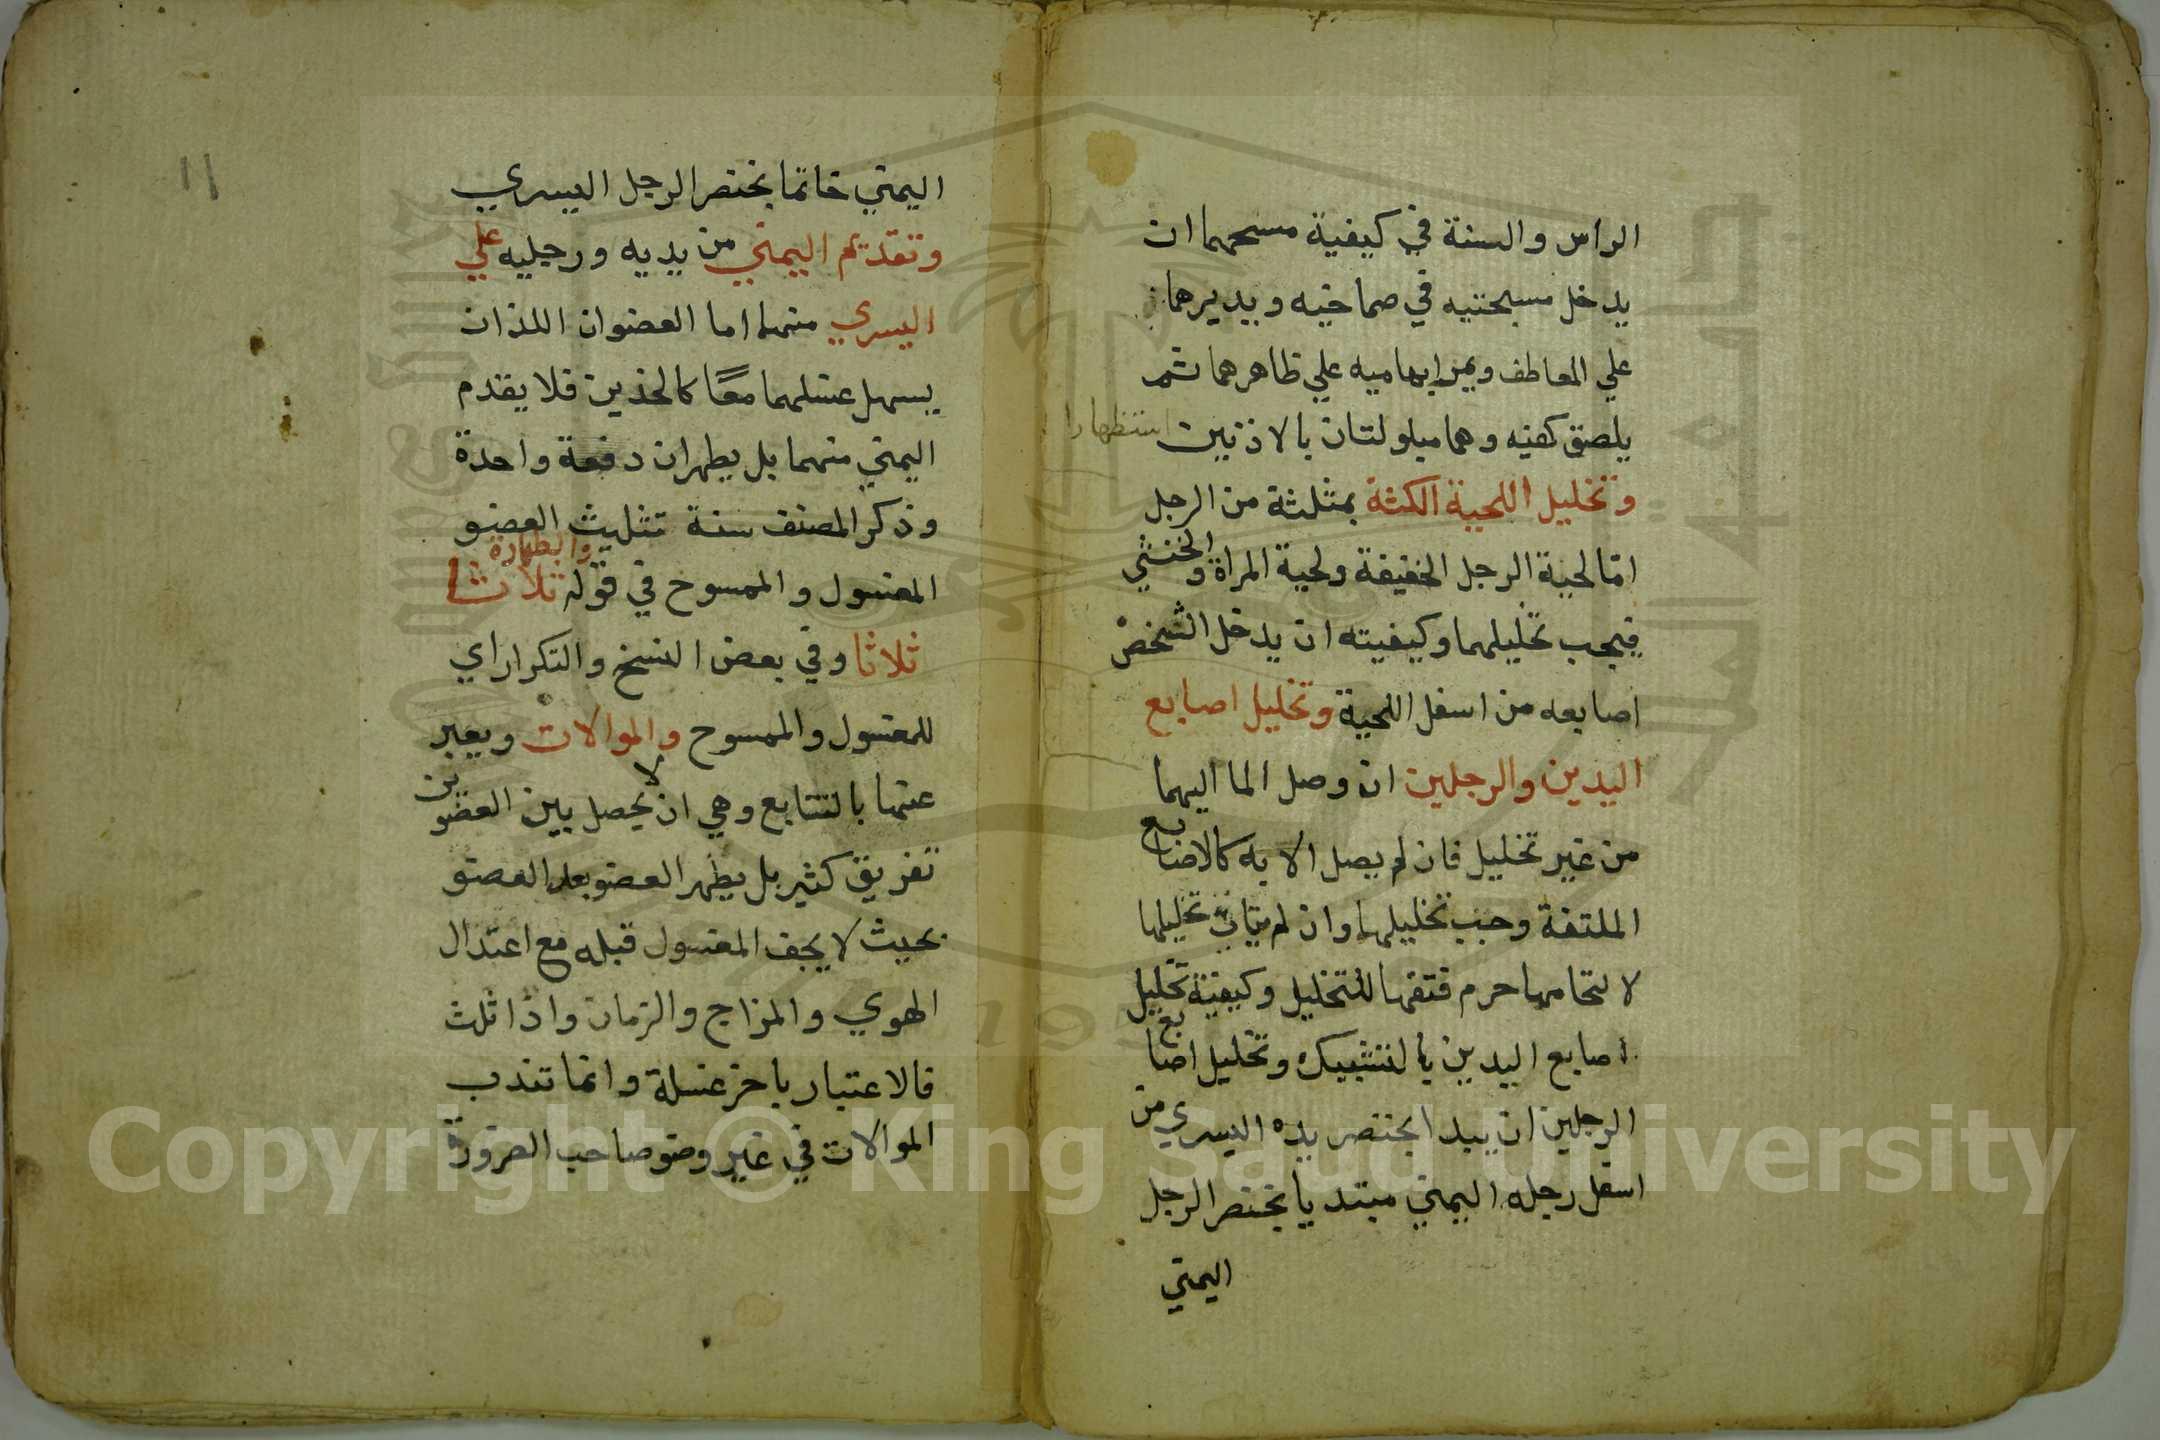 الراس والسنة في كيفية مسحهما ان
يدخل مسبحتيه في صماخيه ويديرهما
علي المعاطف ويمر ابهاميه علي ظاهرهما ثم
يلصق كفيه وهما مبلولتان بالاذنين استظهارا
وتخليل اللحية الكثة بمثلثة من الرجل
امّا لحية الرجل الخفيفة ولحية المراة والخنثي
فيجب تخليلهما وكيفيته ان يدخل الشخص
اصابعه من اسفل اللحية وتخليل اصابع
اليدين والرجلين ان وصل الما اليهما
من غير تخليل فان لم يصل الا به كالاصابع
الملتفة وجب تخليلها وان لم يتات تخليلها
لالتحامها حرم فتقها للتخليل وكيفية تخليل
اصابع اليدين بالتشبيك وتخليل اصابع
الرجلين ان يبدا بخنصر يده اليسري من
اسفل رجله اليمني مبتديا بخنصر الرجل
اليمني
١١
اليمني خاتما بخنصر الرجل اليسري
وتقديم اليمني من يديه ورجليه علي
اليسري منهما اما العضوان اللذان
يسهل غسلهما معًا كالخدين فلا يقدم
اليمني منهما بل يطهران دفعة واحدة
وذكر المصنف سنة تثليث العضو
المغسول والممسوح في قوله والطهارة ثلاثا
ثلاثا وفي بعض النسخ والتكرار اي
للمغسول والممسوح والموالات ويعبر
عنها بالتتابع وهي ان لا يحصل بين العضوين
تفريق كثير بل يطهر العضو بعد العضو
بحيث لا يجف المغسول قبله مع اعتدال
الهوي والمزاج والزمان واذا ثلث
فالاعتبار باخر غسلة وانما تندب
الموالات في غير وضو صاحب الضرورة
Copyright © King Saud University